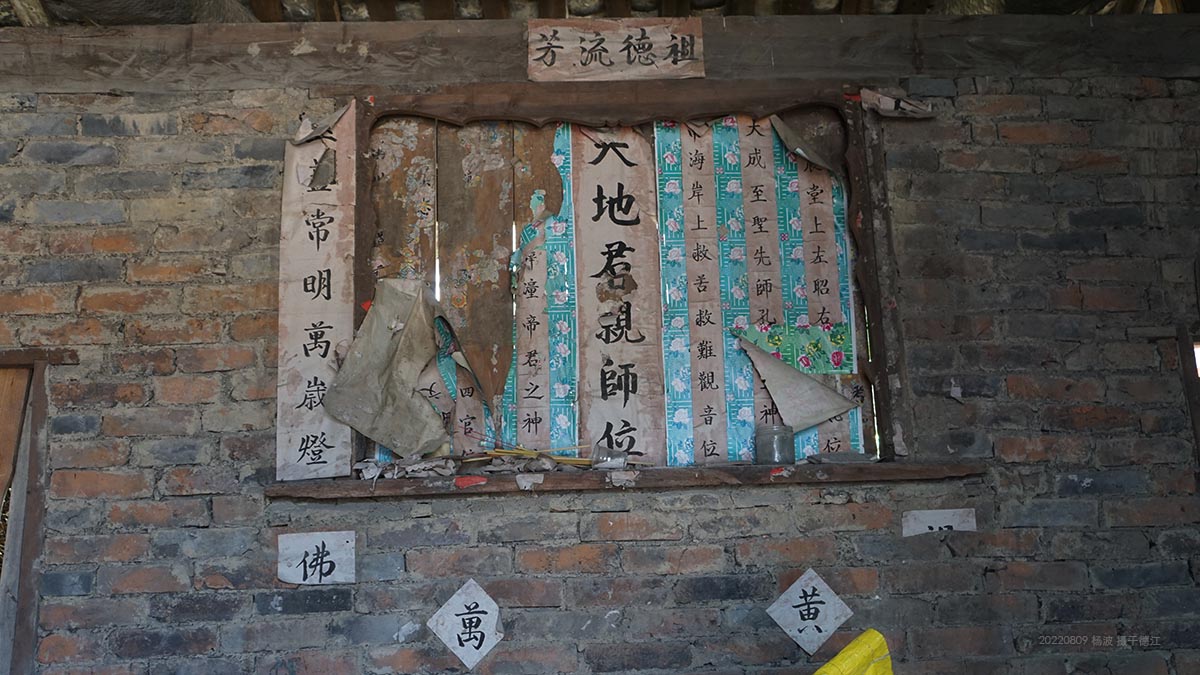 祖德流芳
堂上左昭右
位
大成至聖先師孔
神
海岸上救苦救難觀音位
天地君親師位
潼帝君之神
四官
盞常明萬歲燈
佛
萬
黃
20220809 杨波 摄于德江